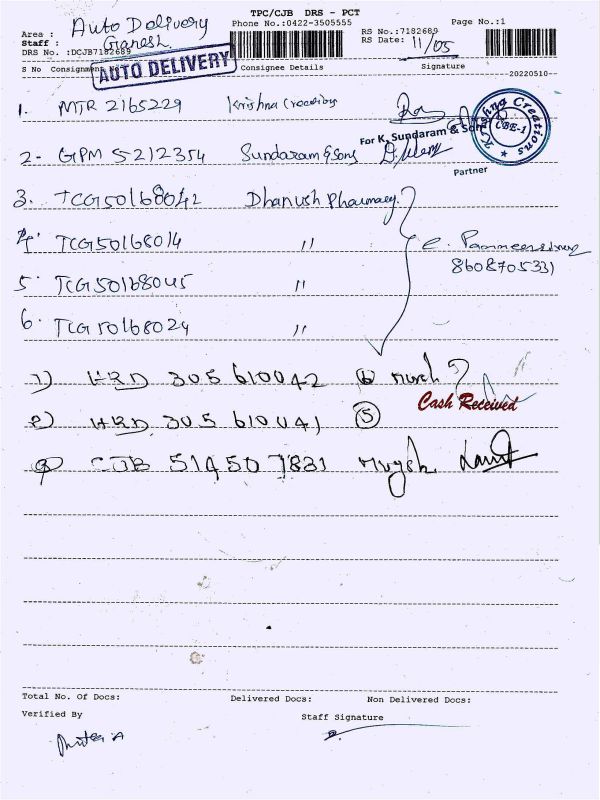 TPC/CJB DRS - PCT
Phone No.:0422-3505555
Page No.:1
Area : Auto Delivery
Staff : Ganesh
DRS No. :DCJB7182689
RS No.:7182689
RS Date: 11/05
S No Consignment No Consignee Details Signature
AUTO DELIVERY
20220510-
1. MTR 2165229 Krishna Creations
Krishna Creations
CBE-1
For K. Sundaram & Sons
2- GPM 5212354 Sundaram & Sons
Partner
3. TCG50168042 Dhanush Pharmacy
4. TCG50168014 "
8608705331
5. TCG50168045 "
6. TCG50168024 "
7) HRD 305 610042 6
Cash Received
8) HRD 305 610041 5
9) CJB 514507831
Total No. Of Docs: Delivered Docs: Non Delivered Docs:
Verified By Staff Signature